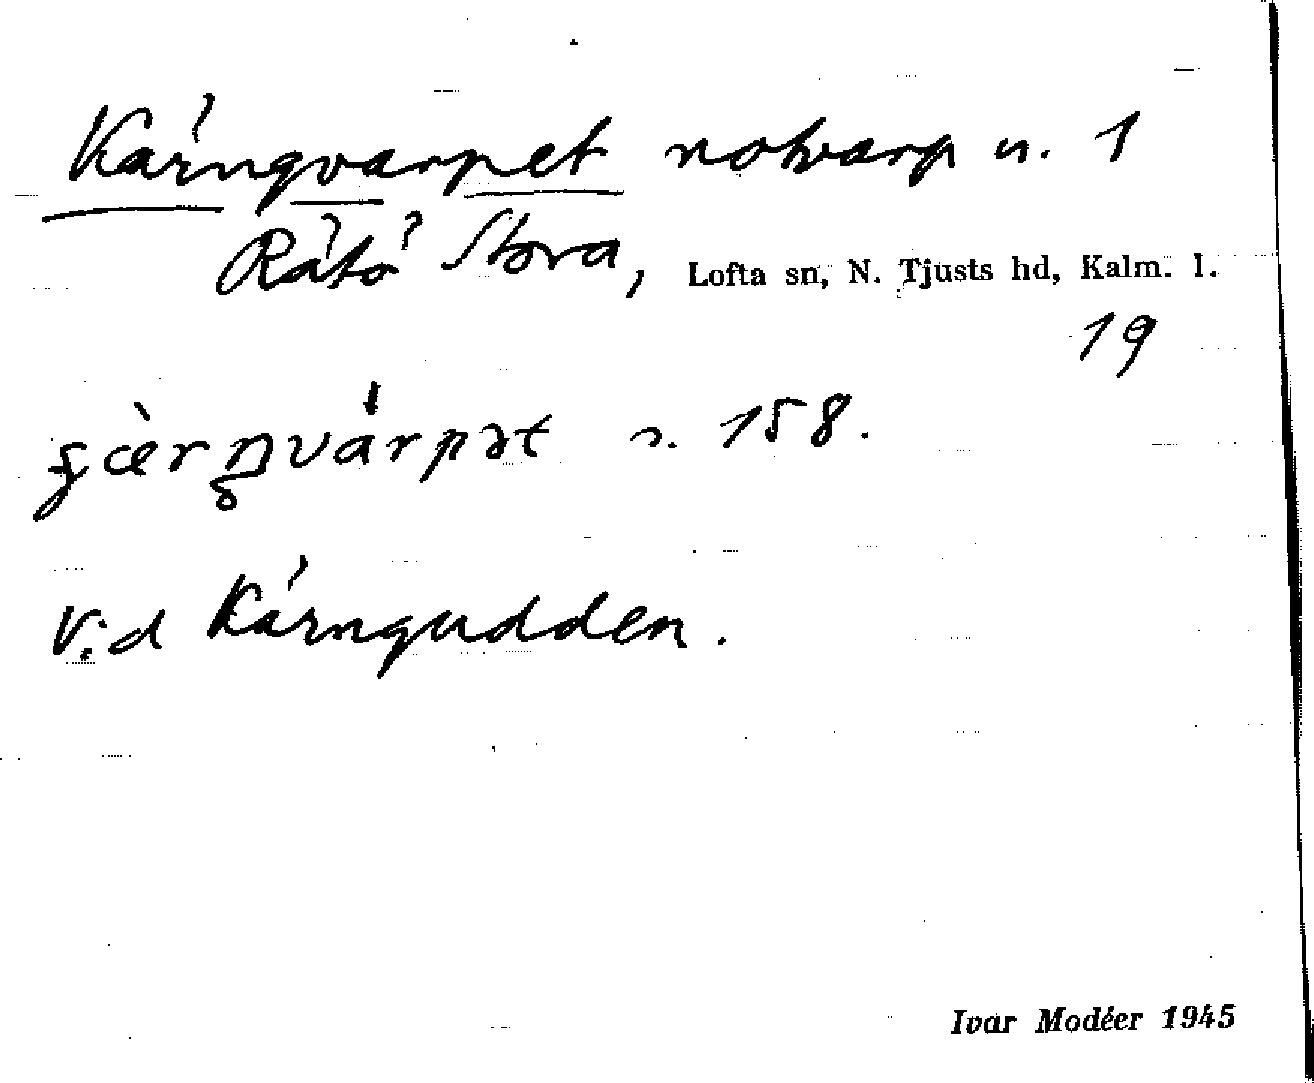 Kärngvarpet notvarp n. 1
Rätö Stora, Lofta sn, N. Tjusts hd, Kalm. l.
19
n. 158.
Vid Kärngudden.
Ivar Modéer 1945